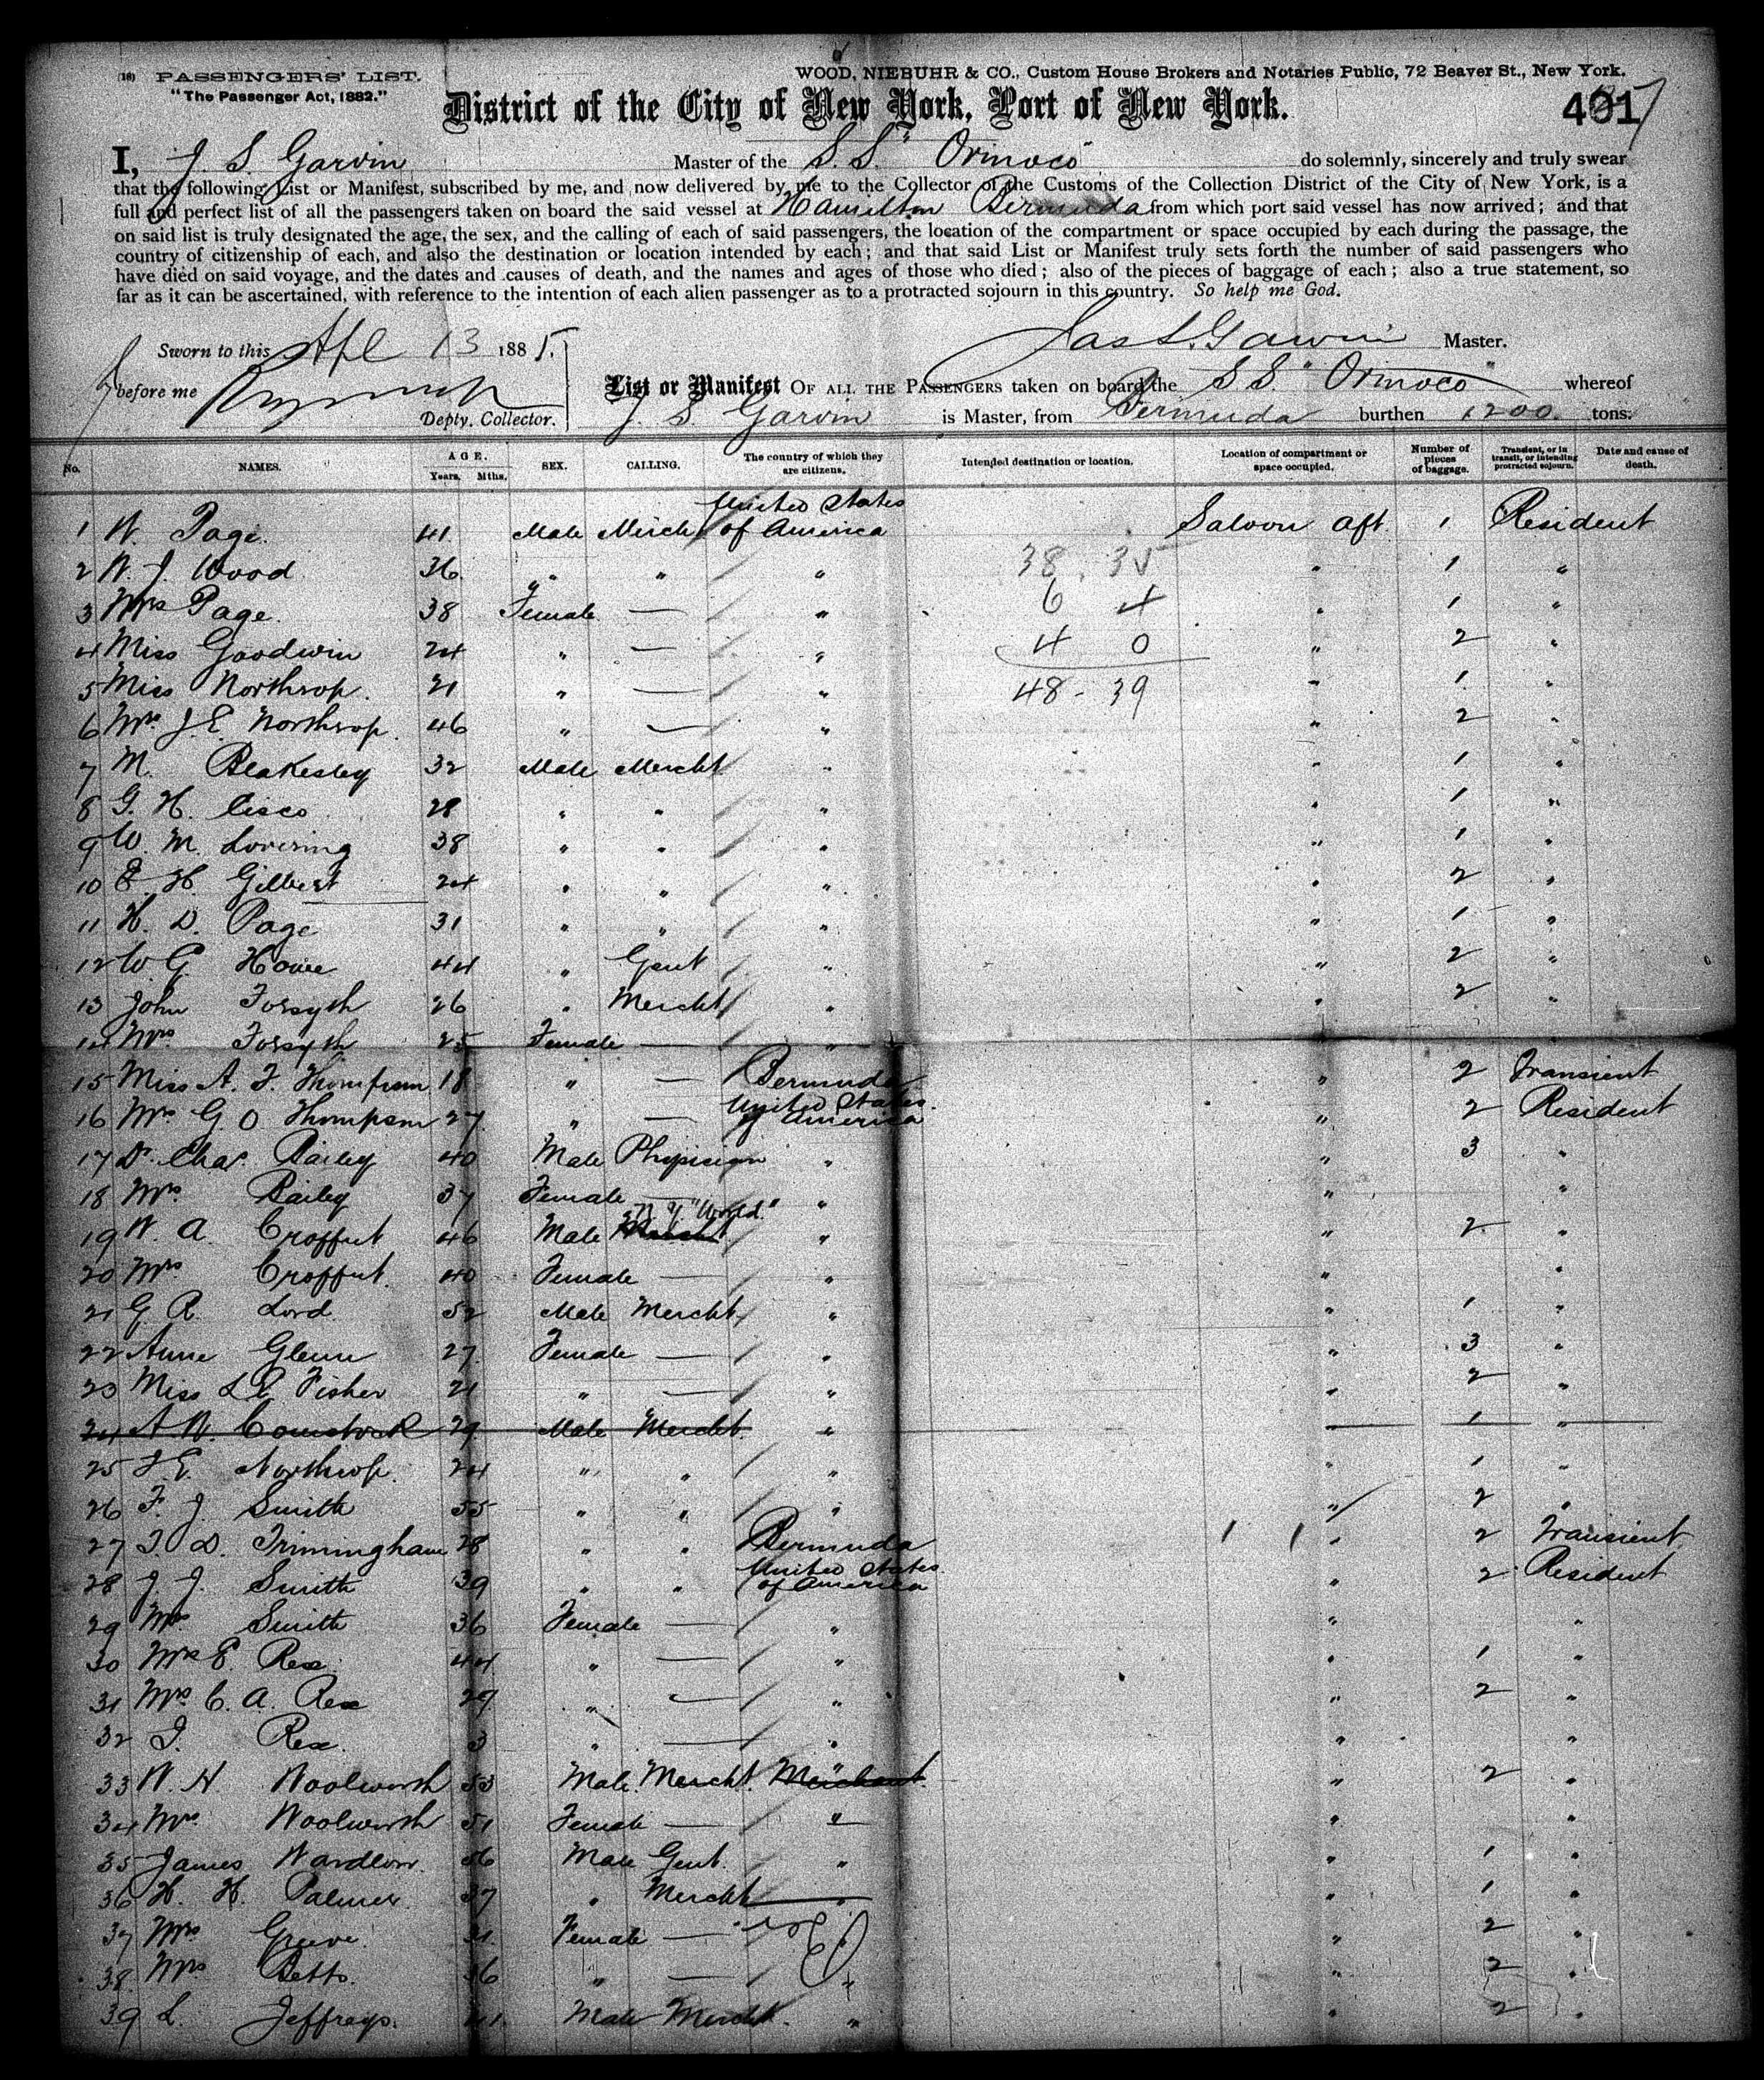 (18) PASSENGERS' LIST.
"The Passenger Act, 1882."
WOOD, NIEBUHR & CO., Custom House Brokers and Notaries Public, 72 Beaver St., New York.
District of the City of New York, Port of New York.
401
I, J. S. Garvin Master of the S.S. "Orinoco" do solemnly, sincerely and truly swear
that the following List or Manifest, subscribed by me, and now delivered by me to the Collector of the Customs of the Collection District of the City of New York, is a
full and perfect list of all the passengers taken on board the said vessel at Hamilton Bermuda from which port said vessel has now arrived; and that
on said list is truly designated the age, the sex, and the calling of each of said passengers, the location of the compartment or space occupied by each during the passage, the
country of citizenship of each, and also the destination or location intended by each; and that said List or Manifest truly sets forth the number of said passengers who
have died on said voyage, and the dates and causes of death, and the names and ages of those who died; also of the pieces of baggage of each; also a true statement, so
far as it can be ascertained, with reference to the intention of each alien passenger as to a protracted sojourn in this country. So help me God.
Jas S. Garvin Master.
Sworn to this Apl 13 1885.
before me
Depty. Collector.
List or Manifest OF ALL THE PASSENGERS taken on board the S S. "Orinoco" whereof
J. S. Garvin is Master, from Bermuda burthen 1200. tons.
No. NAMES. AGE. Years. Mths. SEX. CALLING. The country of which they are citizens. Intended destination or location. Location of compartment or space occupied. Number of pieces of baggage. Transient, or in transit, or intending protracted sojourn. Date and cause of death.
1 W. Page. 41. Male Mercht United States of America Saloon aft. 1 Resident
2 W. J. Wood 36. " " " 38. 35 " 1 "
3 Mrs Page. 38 Female — " 6 4 " 1 "
4 Miss Goodwin 24 " — " 4 0 " 2 "
5 Miss Northrop. 21 " — " 48 - 39 " 1 "
6 Mrs J. E. Northrop. 46 " — " " 2 "
7 M. Blakesley 32 Male Mercht " " 1 "
8 G. H. Cisco 28 " " " " 1 "
9 W. M. Lovering 38 " " " " 1 "
10 E. H. Gilbert 24 " " " " 2 "
11 H. D. Page 31 " " " " 1 "
12 W G. Howe 44 " Gent " " 2 "
13 John Forsyth 26 " Mercht " " 2 "
14 Mrs Forsyth 25 Female — "
15 Miss A. F. Thompson 18 " — Bermuda " 2 Transient
16 Mrs G O Thompson 27. " — United States of America " 2 Resident
17 Dr. Chas. Bailey 40 Male Physician " " 3 "
18 Mrs Bailey 37 Female — " " "
19 W. A. Croffut 46 Male N. Y. "World." " " 2 "
20 Mrs Croffut. 40 Female — " " "
21 G R. Lord 52 Male Mercht. " " 1 "
22 Anne Glenn 27. Female — " " 3 "
23 Miss L E Fisher 21 " — " " 2 "
24 A W. Comstock 29 Male Mercht. " 1 "
25 J. E. Northrop. 24 " " " " 1 "
26 F. J. Smith 55 " " " " 2 "
27 T. D. Trimingham 28 " " Bermuda " 2 Transient
28 J. J. Smith 39 " " United States of America " 2 Resident
29 Mrs Smith 36 Female — " " "
30 Mrs E. Rex. 44. " — " " 1 "
31 Mrs C. A. Rex 29. " — " " 2 "
32 I. Rex. 3 " — " " "
33 W. H Woolworth 53 Male. Mercht. Merchant " " 2 "
34 Mrs Woolworth 51 Female — " " "
35 James Wardlow. 56 Male Gent. " " 1 "
36 H. H. Palmer 37 " Mercht " " 1 "
37 Mrs Greeve. Female — " " 2 "
38 Mrs Betts. " — " " 2 "
39 L. Jeffreys. Male Mercht. " " 2 "